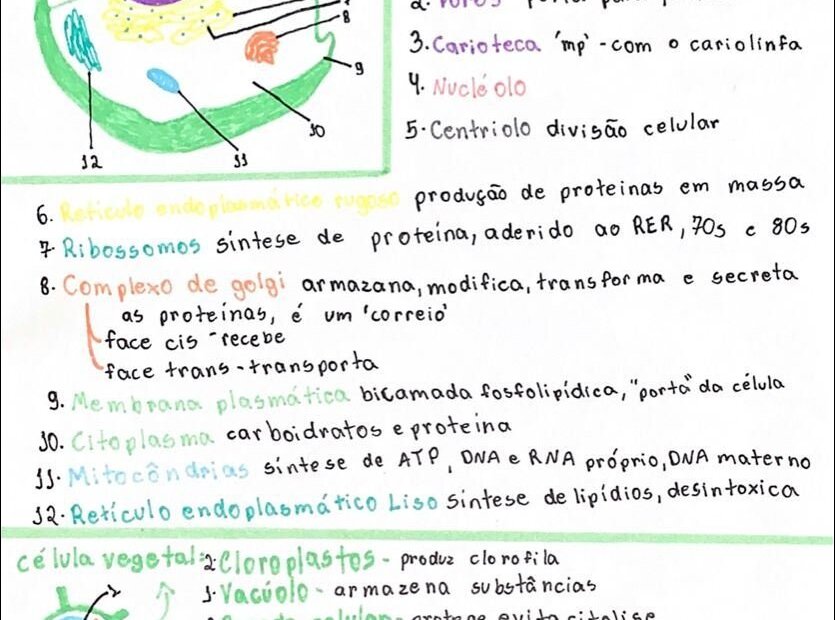 8
9
10
11
12
3. Carioteca 'mp' - com o cariolinfa
4. Nucléolo
5. Centriolo divisão celular
6. Retículo endoplasmático rugoso produção de proteinas em massa
7. Ribossomos síntese de proteína, aderido ao RER, 70s e 80s
8. Complexo de golgi armazana, modifica, transforma e secreta
as proteínas, é um 'correio'
face cis - recebe
face trans - transporta
9. Membrana plasmática bicamada fosfolipídica, "porta" da célula
10. Citoplasma carboidratos e proteína
11. Mitocôndrias síntese de ATP, DNA e RNA próprio, DNA materno
12. Retículo endoplasmático Liso síntese de lipídios, desintoxica
célula vegetal: 2 Cloroplastos - produz clorofila
1. Vacúolo - armazena substâncias